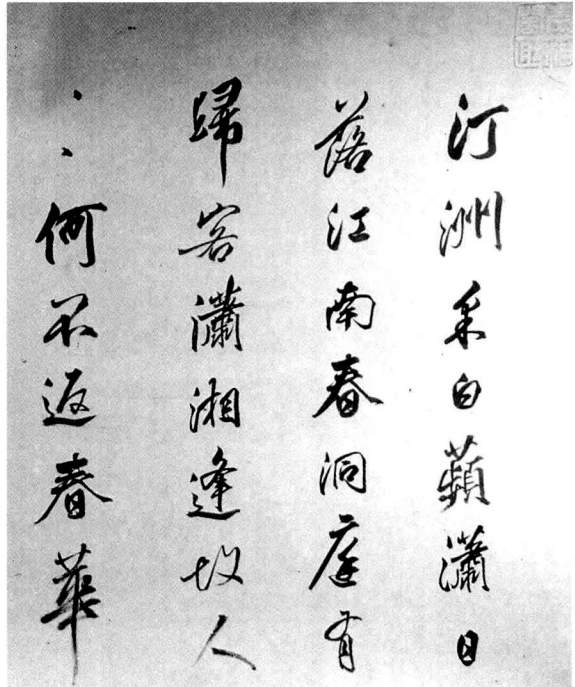 汀洲采白蘋瀟日
落江南春洞庭有
歸客瀟湘逢故人
〻何不返春華